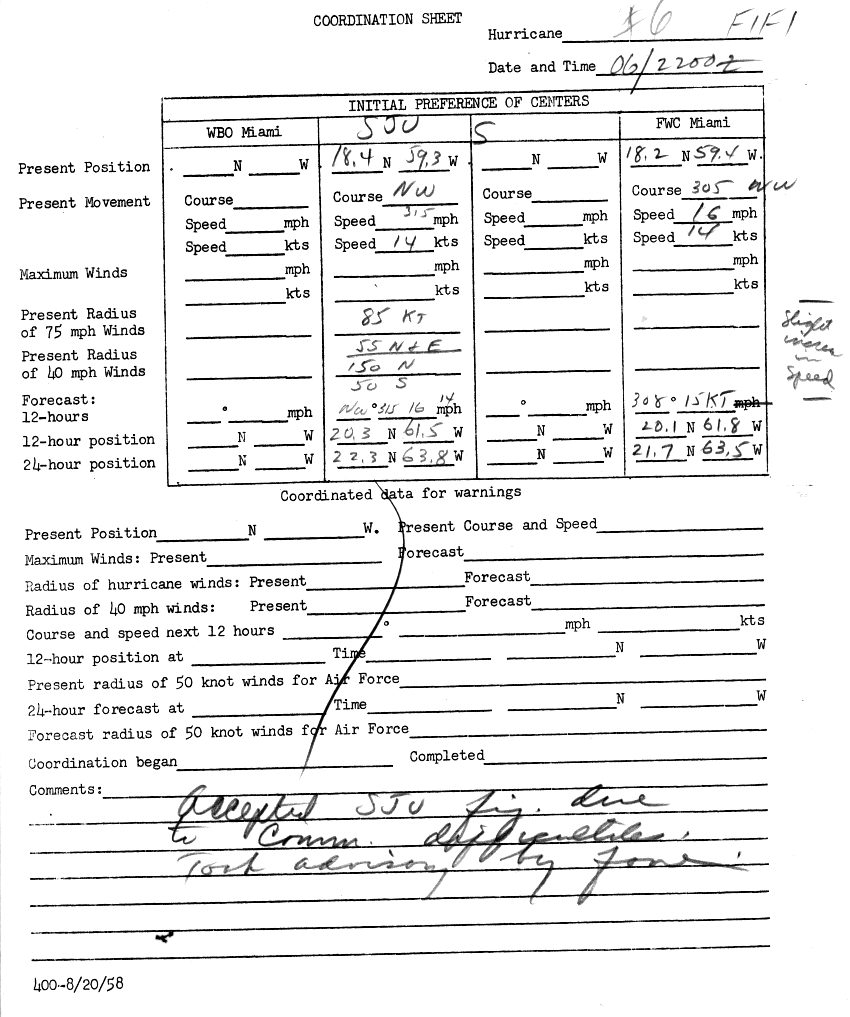 COORDINATION SHEET
Hurricane #6 FIFI
Date and Time 06/2200Z
INITIAL PREFERENCE OF CENTERS
WBO Miami SJU S FWC Miami
Present Position N W 18.4 N 59.3 W N W 18.2 N 59.4 W.
Present Movement Course Course NW Course Course 305 NW
Speed mph Speed 315 mph Speed mph Speed 16 mph
Speed kts Speed 14 kts Speed kts Speed 14 kts
Maximum Winds mph mph mph mph
kts kts kts kts
Present Radius of 75 mph Winds 85 KT
Present Radius 55 N & E
of 40 mph Winds 150 N
50 S
Slight
in
Speed
Forecast:
12-hours ° mph NW ° 315 16 mph 14 ° mph 308° 15 KT mph
12-hour position N W 20.3 N 61.5 W N W 20.1 N 61.8 W
24-hour position N W 22.3 N 63.8 W N W 21.7 N 63.5 W
Coordinated data for warnings
Present Position N W. Present Course and Speed
Maximum Winds: Present Forecast
Radius of hurricane winds: Present Forecast
Radius of 40 mph winds: Present Forecast
Course and speed next 12 hours ° mph kts
12-hour position at Time N W
Present radius of 50 knot winds for Air Force
24-hour forecast at Time N W
Forecast radius of 50 knot winds for Air Force
Coordination began Completed
Comments:
Accepted SJU fig. due
to Comm. difficulties.
Took advisory by fone.
400-8/20/58